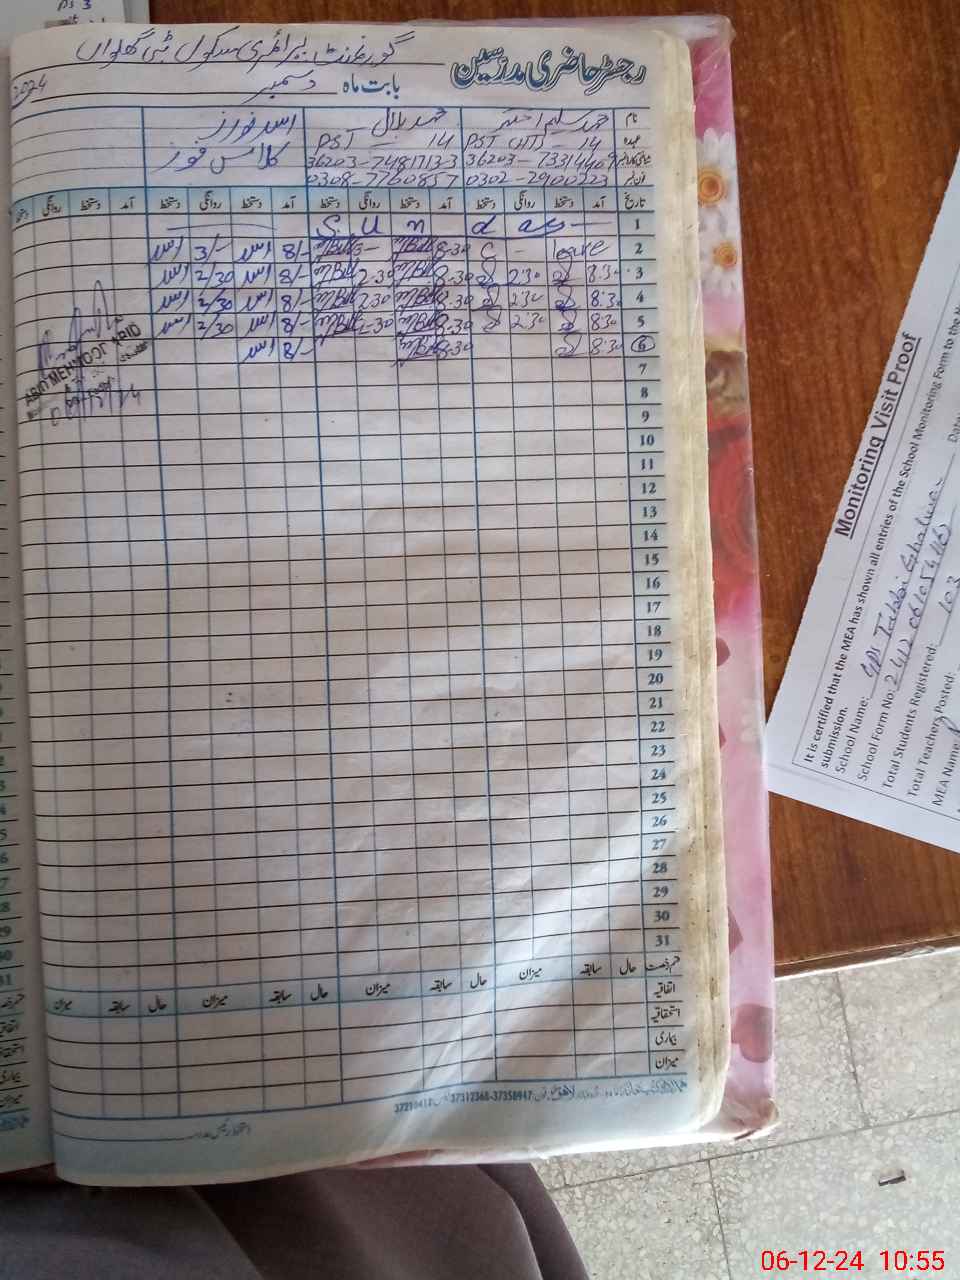 رجسٹر حاضری مدرسین گورنمنٹ پرائمری سکول ٹبی گھلواں
بابت ماہ دسمبر 2024
نام محمد سلیم اختر محمد بلال اسد فورز
عہدہ PST 14 PST 14 کلاس فور
36203-7481713-3
0302-2900223 0308-7760857
تاریخ آمد دستخط روانگی دستخط آمد دستخط روانگی دستخط آمد دستخط روانگی دستخط آمد دستخط روانگی دستخط
1 Sunday
2 Leave 8-30 8/- اسد 3/- اسد
3 8.30 2.30 8.30 2.30 8/- اسد 2/30 اسد
4 8.30 2.30 8.30 2.30 8/- اسد 2/30 اسد
5 8.30 2.30 8.30 2.30 8/- اسد 2/30 اسد
6 8.30 8.30 8/- اسد
7
8
9
10
11
12
13
14
15
16
17
18
19
20
21
22
23
24
25
26
27
28
29
30
31
حال سابقہ میزان حال سابقہ میزان حال سابقہ میزان
اتفاقیہ
استحقاقیہ
بیماری
میزان
37312368-37350947
Monitoring Visit Proof
It is certified that the MEA has shown all entries of the School Monitoring Form to the
submission.
School Name: GPS Tibbi Ghalwan
School Form No:
Total Students Registered: 103
Total Teachers Posted:
MEA Name:
06-12-24 10:55